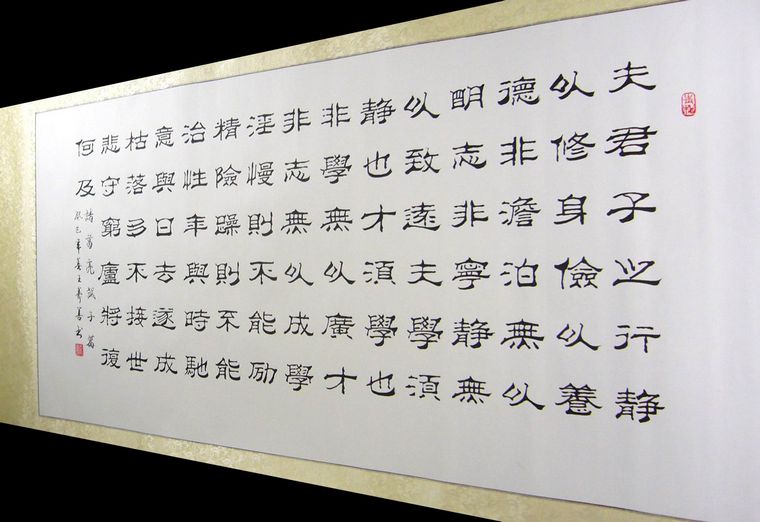 夫君子之行静
以修身儉以養
德非澹泊無以
明志非寧静無
以致遠夫學須
静也才須學也
非學無以廣才
非志無以成學
淫慢則不能励
精險躁則不能
治性年與時馳
意與日去遂成
枯落多不接世
悲守窮廬將復
何及
諸葛亮誡子篇
癸巳年